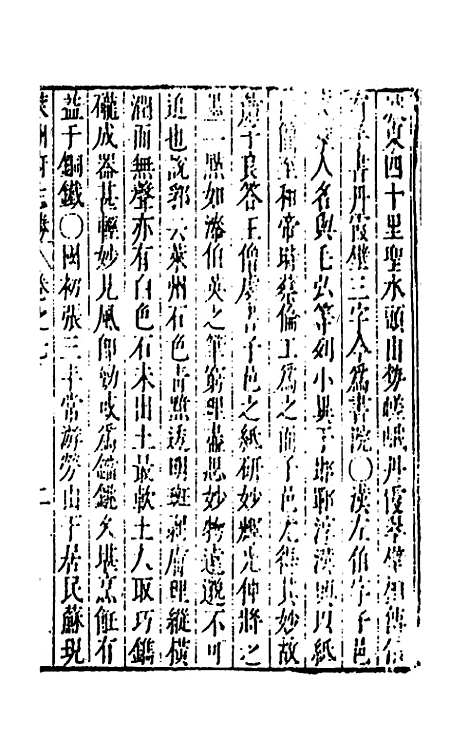 四十里聖水頭山勢嵯峨丹霞翠壁相傳
書丹霞壁三字今為書院〇漢左伯字子邑
人名與毛弘等列小異于邯鄲淳漢興以紙
簡至和帝時蔡倫工為之而子邑尤得其妙故
蕭子良荅王僧虔書子邑之紙研妙輝光仲將之
墨一點如漆伯英之筆窮理盡思妙物遠邈不可
追也說郛云萊州石色青黯透明斑剥膚理縱橫
潤而無聲亦有白色石未出土最軟土人取巧鐫
礲成器甚輕妙見風即勁或為鐺銚久堪烹飪有
益于銅鐵〇國初張三丰常游勞山下居民蘇現
卷之七 二